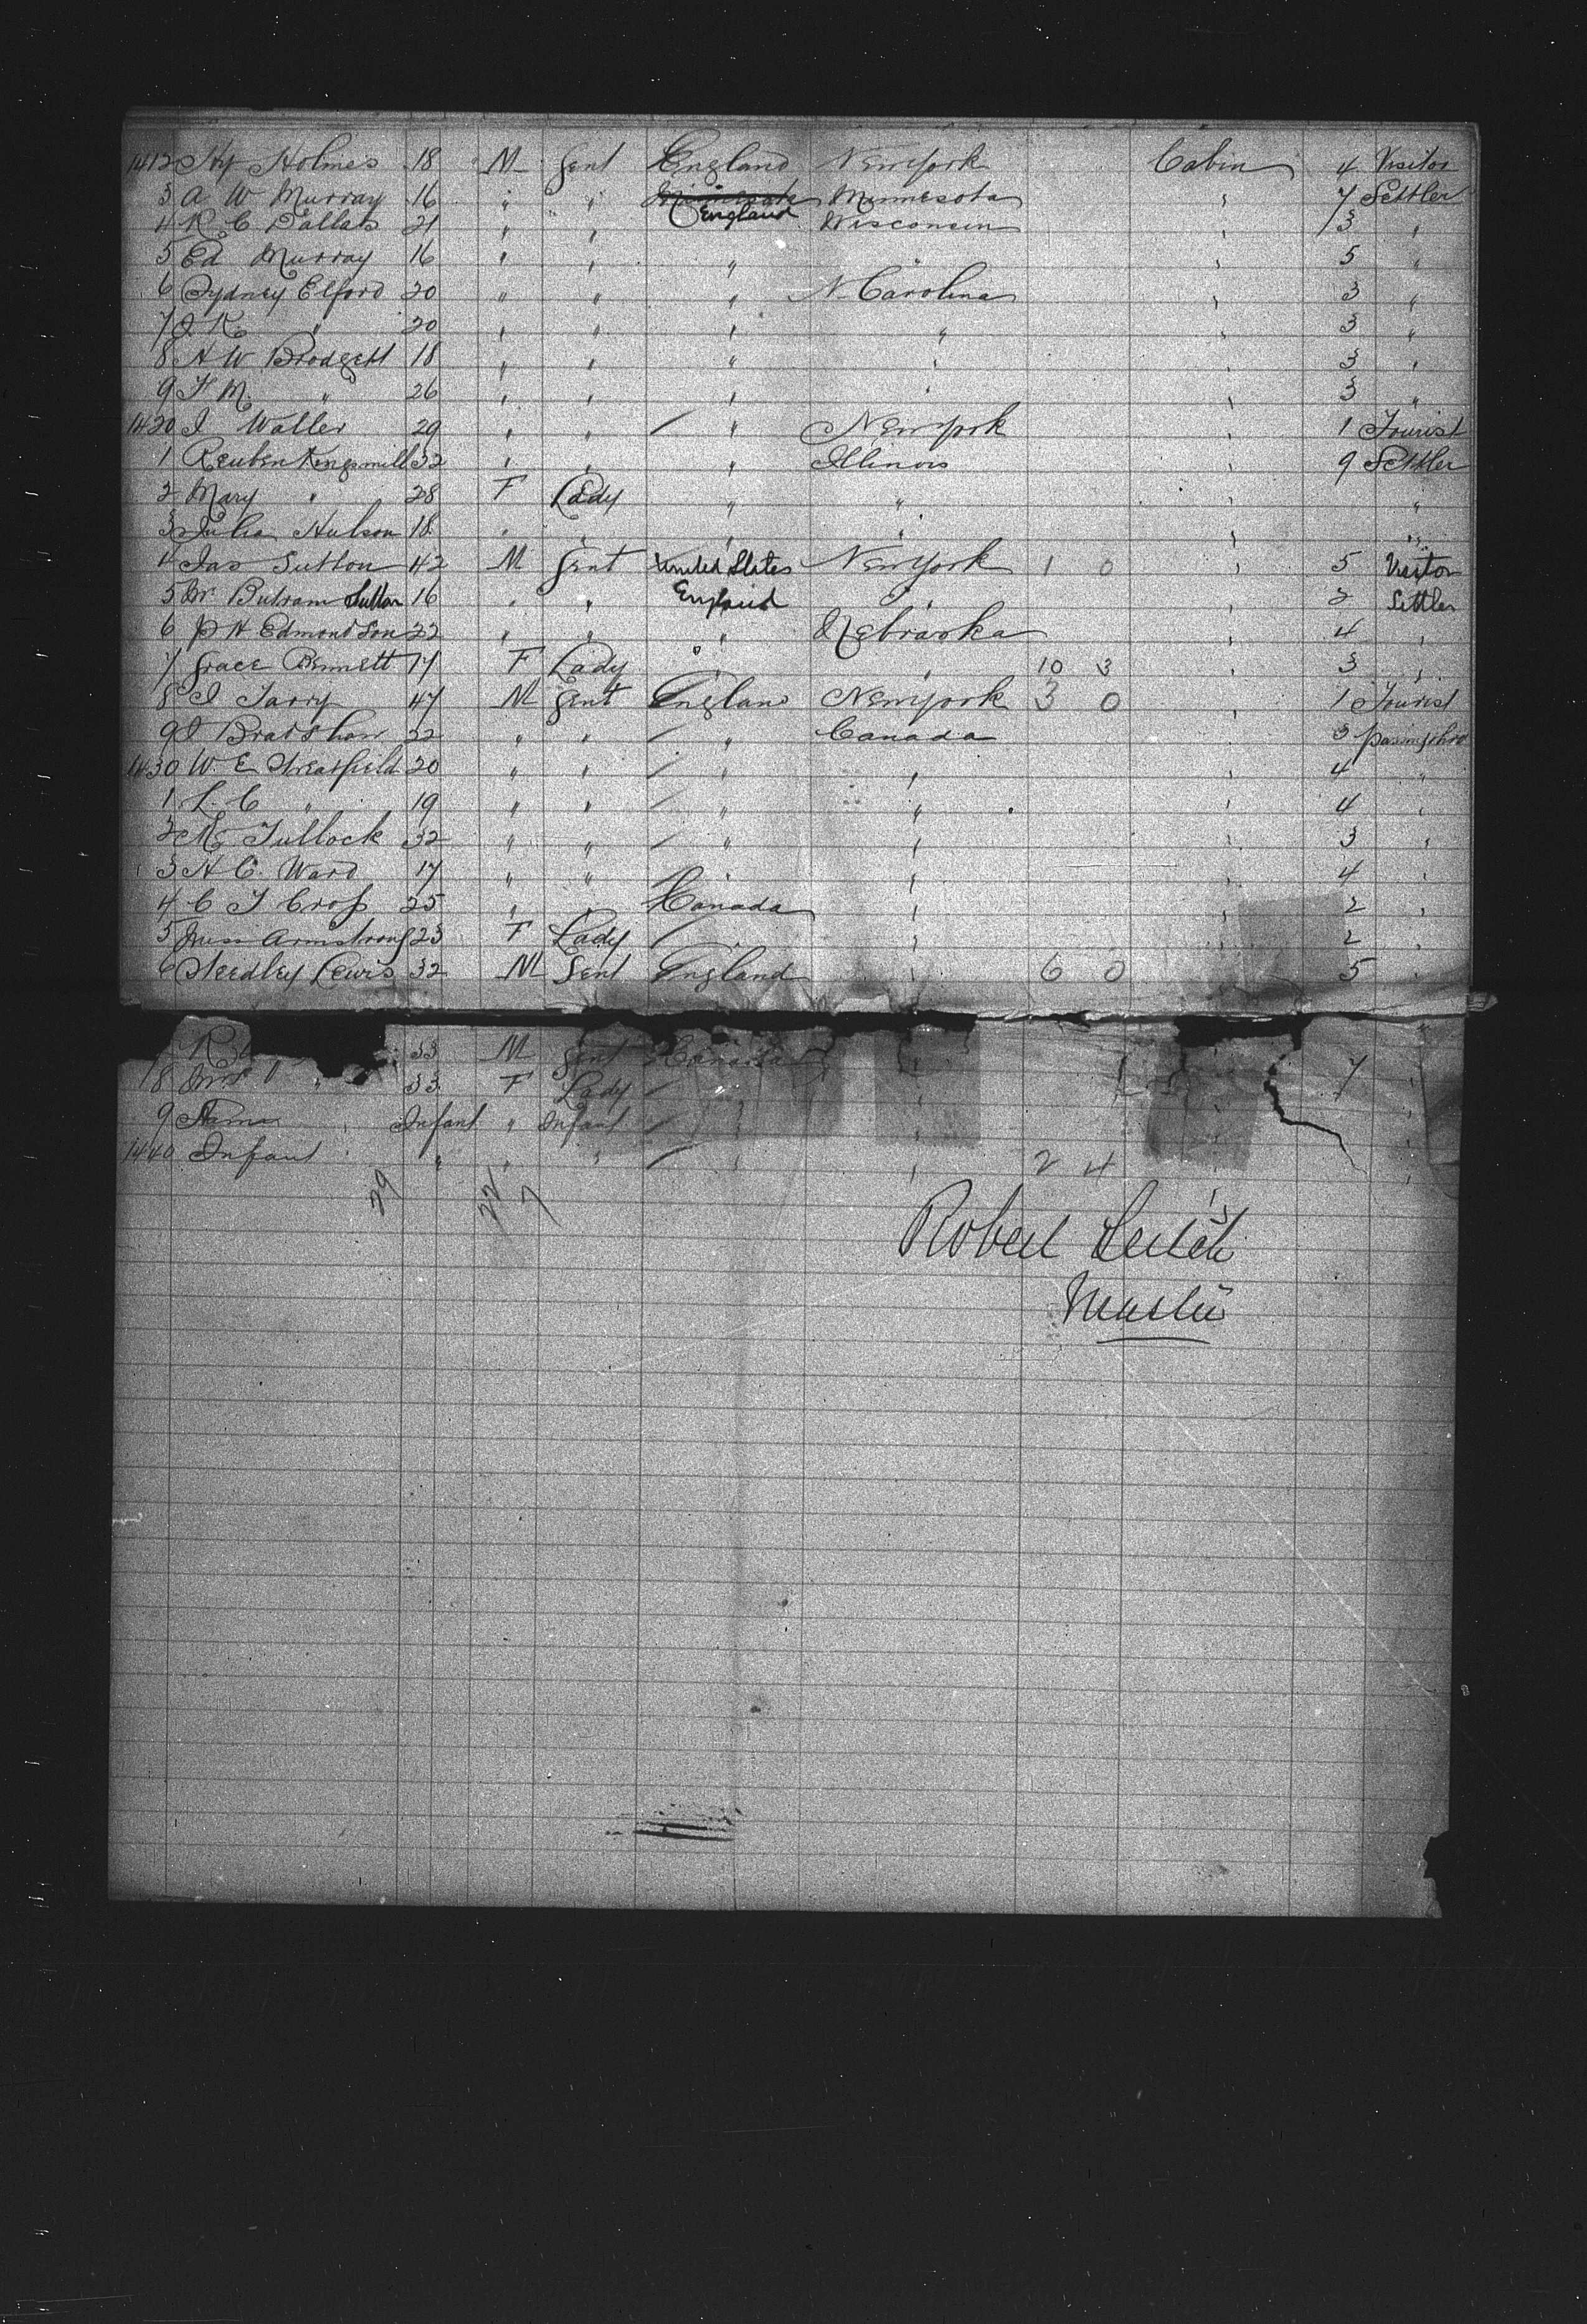 1412 Hy Holmes 18 M Gent England New York Cabin 4 Visitor
3 A W Murray 16 " " England Minnesota " 7 Settler
4 R. C Dallas 21 " " Wisconsin " 3 "
5 Ed Murray 16 " " " " " 5 "
6 Sydney Elford 20 " " " N. Carolina " 3 "
7 J. K. " 20 " " " " " 3 "
8 H W Blodgett 18 " " " " " 3 "
9 F M. " 26 " " " " " 3 "
1420 J Waller 29 " " / " New york " 1 Tourist
1 Reuben Kingsmill 32 " " " Illinois " 9 Settler
2 Mary " 28 F Lady " " " "
3 Julia Hulson 18 " " " " " "
4 Jas Sutton 42 M Gent United States New York 1 0 " 5 Visitor
5 Sutton 16 " " England " " 2 Settler
6 P H Edmondson 22 " " " Nebraska " 4 "
7 Grace Bennett 17 F Lady " " 10 3 " 3 "
8 J Tarry 47 M Gent England New york 3 0 " 1 Tourist
9 J Bradshaw 22 " " / " Canada " 3
1430 W. E Streatfield 20 " " / " " " 4 "
1 L. C " 19 " " / " " 4 "
2 M Tullock 32 " " / " " " 3 "
3 H C. Ward 17 " " / " " " 4 "
4 C J Cross 25 " " Canada " " 2 "
5 Miss Armstrong 23 F Lady / " " " 2 "
6 Lewis 32 M Gent England " 6 0 5 "
7 R 33 M Gent Canada " 7 "
8 Mrs " 33 F Lady /
9 Infant " Infant / "
1440 Infant " " " " / " " 2 4 "
29 22 7
Robert Leitch
Master